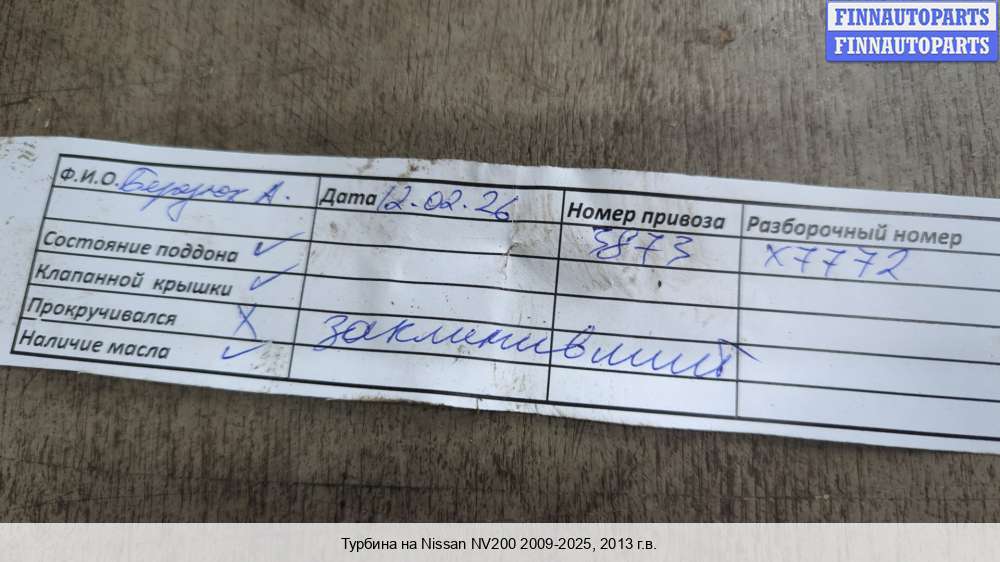 FINNAUTOPARTS
FINNAUTOPARTS
Ф.И.О. А. Дата 12.02.26 Номер привоза Разборочный номер
3873 X7772
Состояние поддона ✓
Клапанной крышки ✓
Прокручивался X заклинивший
Наличие масла ✓
Турбина на Nissan NV200 2009-2025, 2013 г.в.